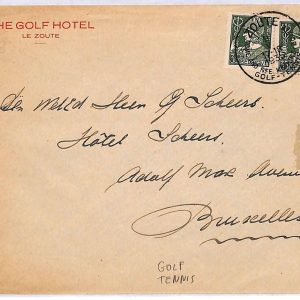 THE GOLF HOTEL
LE ZOUTE
ZOUTE
GOLF - TE
Den Weled Heer G Scheers.
Hôtel Scheers.
Adolf Max Avenue
Bruxelles
GOLF
TENNIS